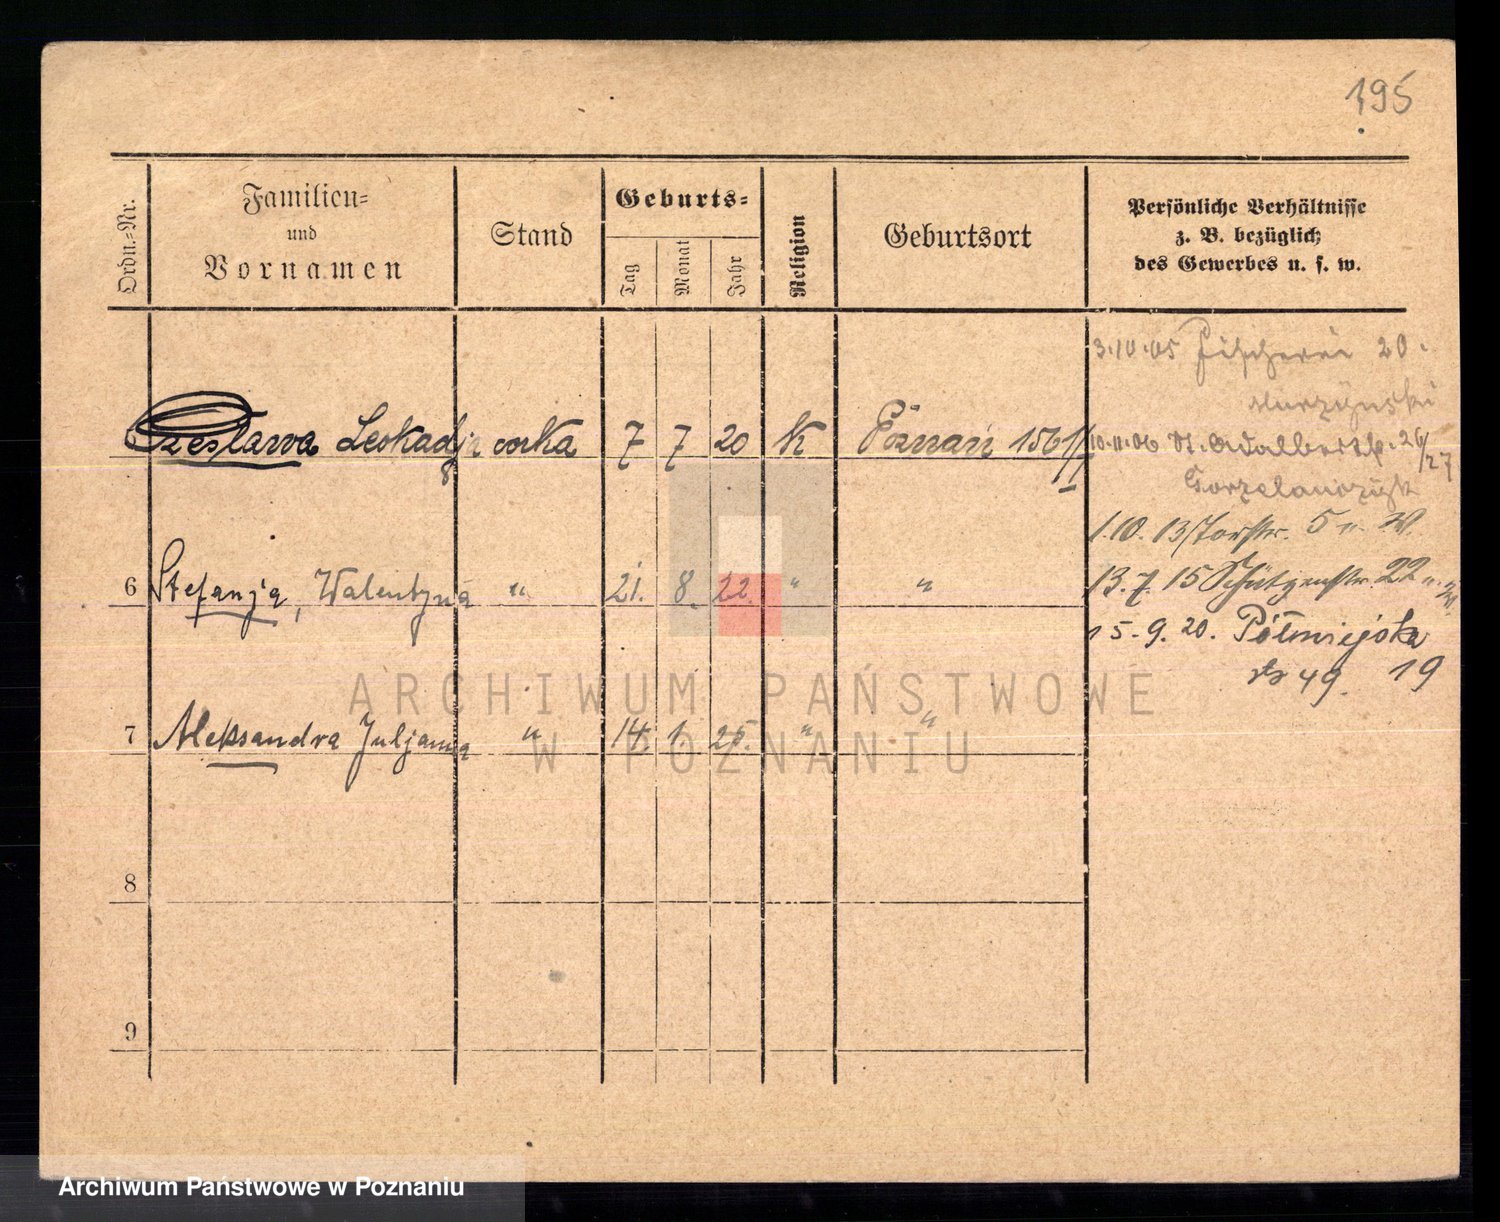 195
Ordn.-Nr.
Familien-
und
Vornamen
Stand
Geburts-
Tag
Monat
Jahr
Religion
Geburtsort
Persönliche Verhältnisse
z. B. bezüglich
des Gewerbes u. s. w.
3.10.05 Fischerei 20.
Murzynski
Czesława Leokadja corka 7 7 20 K Poznań 156/II
10.11.06 St. Adalbertstr. 26/27
Gorzelanczyk
1.10.13 Torstr. 5 u. W.
6 Stefanja, Walentyna " 21. 8. 22. " "
13.7.15 Schützenstr. 22
15.9.20. Półwiejska
19
49.
7 Aleksandra Juljanna " 14. 1. 25. " "
8
9
ARCHIWUM PAŃSTWOWE
W POZNANIU
Archiwum Państwowe w Poznaniu